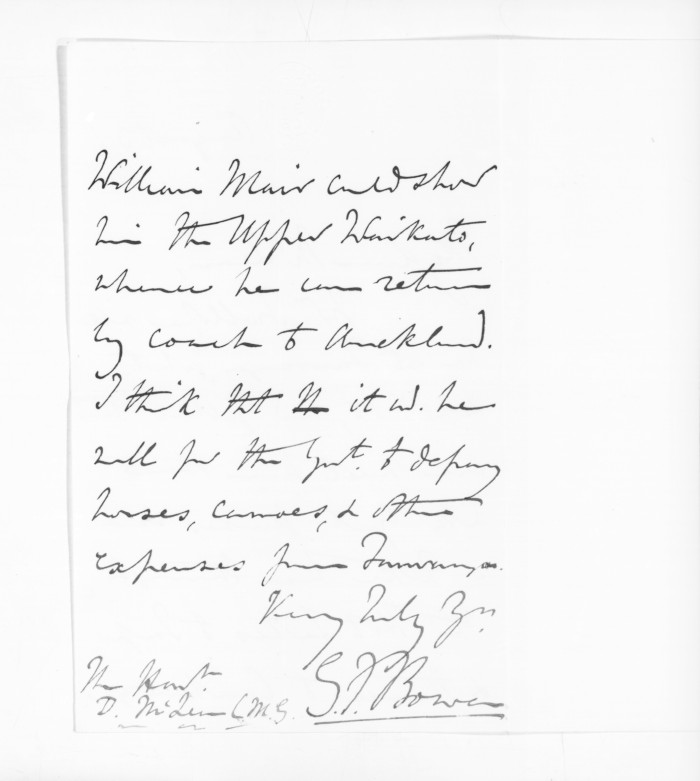 William Mair could show
him the Upper Waikato,
whence he can return
by coach to Auckland.
I think tht it wd. be
well for the Govt. to defray
horses, canoes, & other
expenses from Tauranga.
Very truly Yrs
The Honble
D. McLean C.M.G. G.F. Bowen